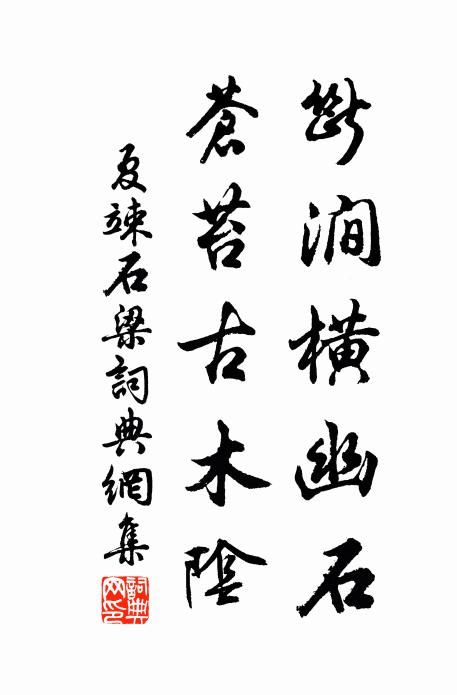 斷澗橫幽石
蒼苔古木陰
夏竦石梁詞典網集
詞典網印